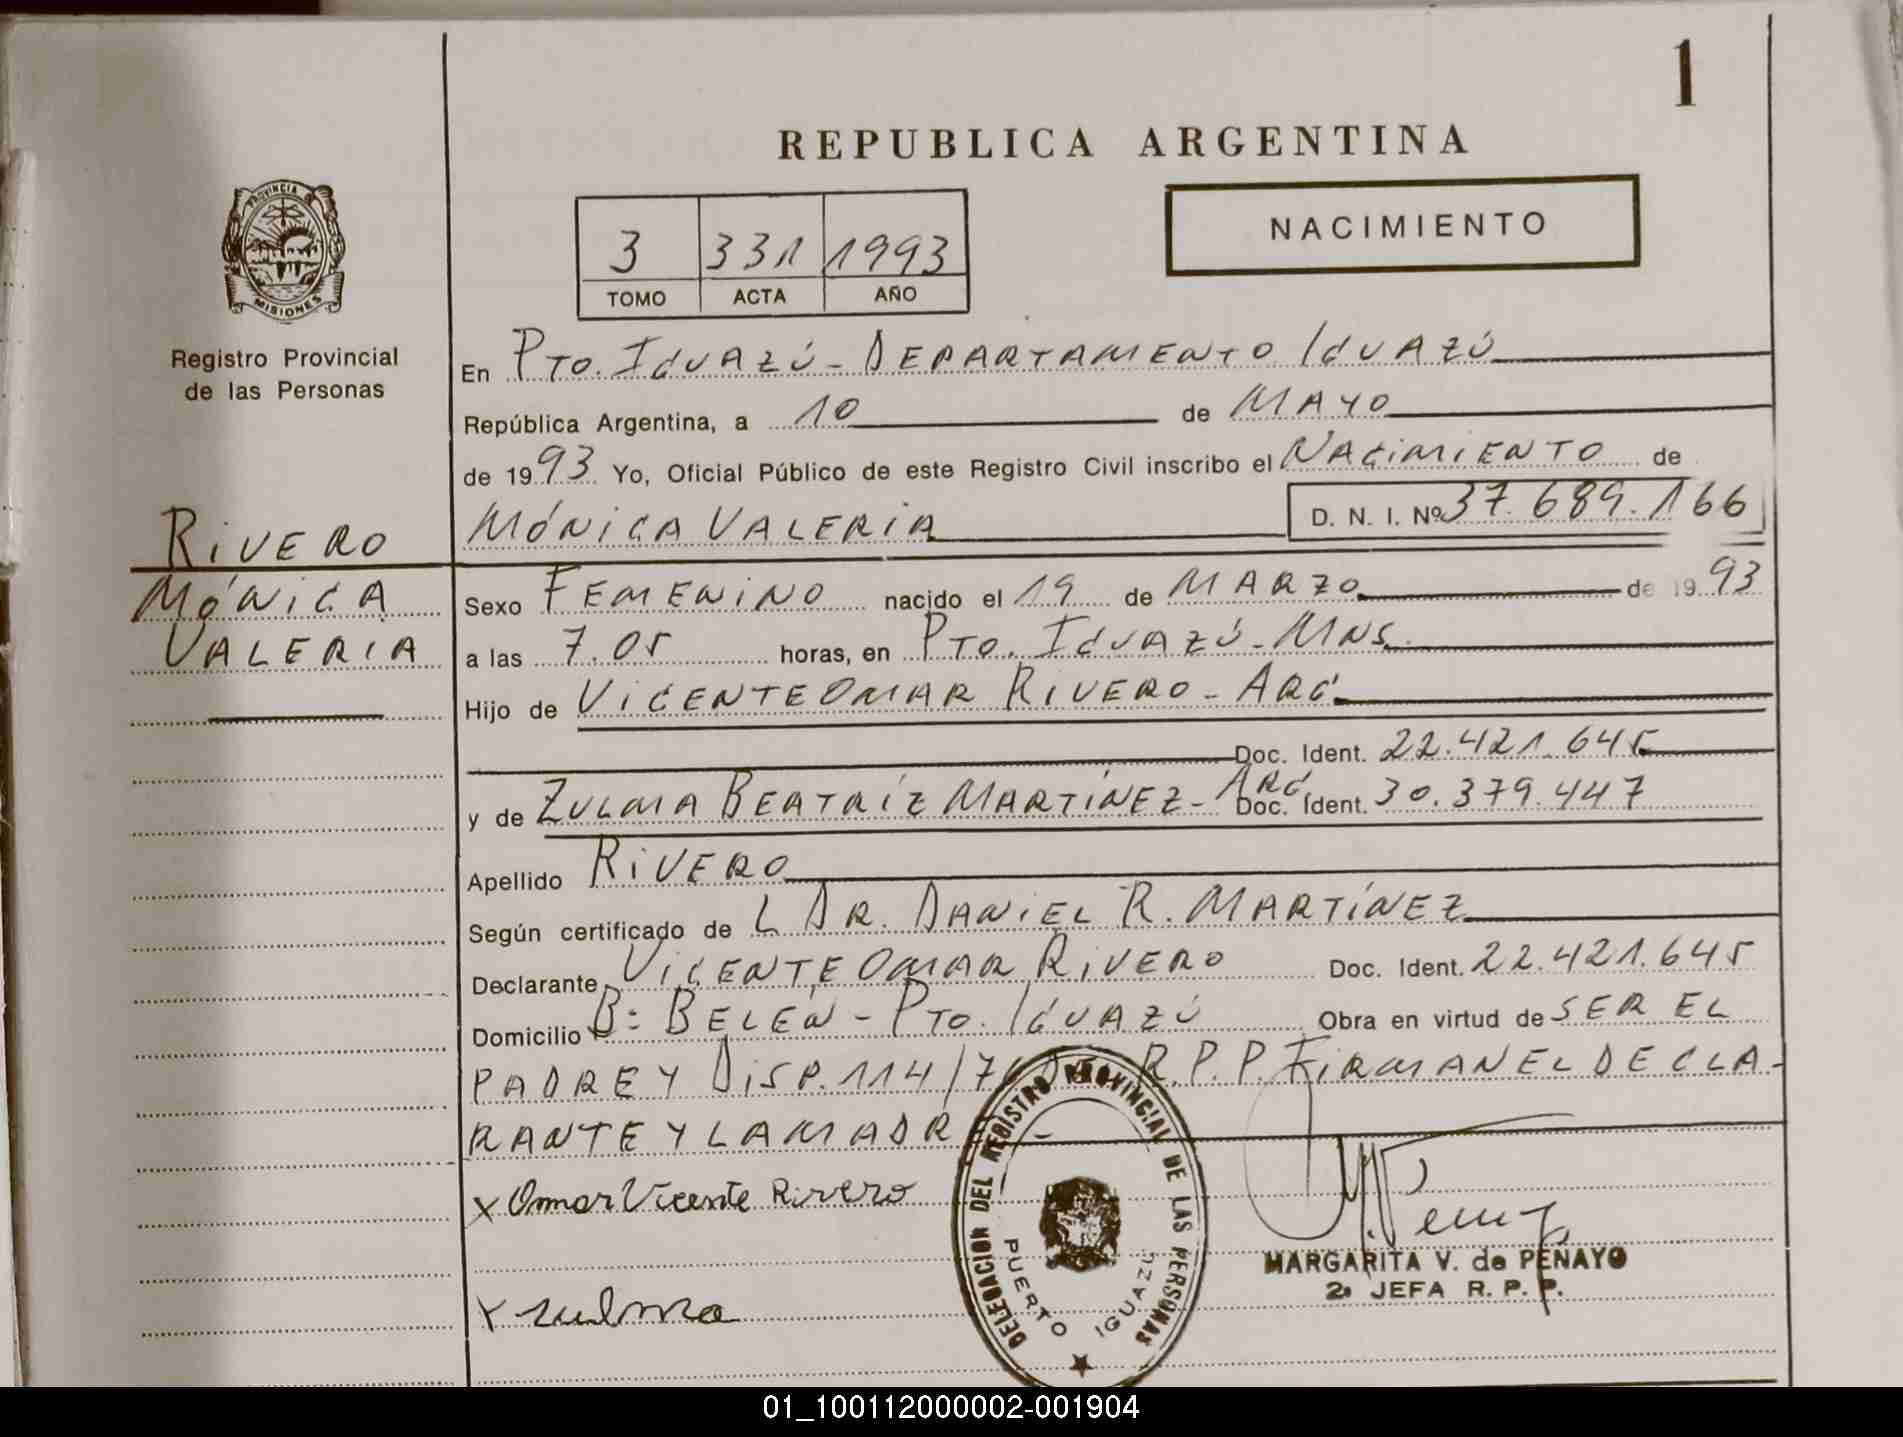 1
REPUBLICA ARGENTINA
PROVINCIA D MISIONES
Registro Provincial
de las Personas
3 331 1993
TOMO ACTA AÑO
NACIMIENTO
En PTO. IGUAZÚ - DEPARTAMENTO IGUAZÚ
República Argentina, a 10 de MAYO
de 1993 Yo, Oficial Público de este Registro Civil inscribo el NACIMIENTO de
MÓNICA VALERIA D. N. I. Nº 37.689.166
RIVERO
MÓNICA
VALERIA
Sexo FEMENINO nacido el 19 de MARZO de 1993
a las 7.05 horas, en PTO. IGUAZÚ - MNS.
Hijo de VICENTE OMAR RIVERO - ARG.
Doc. Ident. 22.421.645
y de ZULMA BEATRÍZ MARTÍNEZ - ARG. Doc. Ident. 30.379.447
Apellido RIVERO
Según certificado de L DR. DANIEL R. MARTÍNEZ
Declarante VICENTE OMAR RIVERO Doc. Ident. 22.421.645
Domicilio B: BELÉN - PTO. IGUAZÚ Obra en virtud de SER EL
PADRE Y DISP. 114/7 R.P.P. FIRMAN EL DECLA-
RANTE Y LA MADR -
x Omar Vicente Rivero
x zulma
DELEGACION DEL REGISTRO PROVINCIAL DE LAS PERSONAS
PUERTO IGUAZU
MARGARITA V. de PENAYO
2a JEFA R. P. P.
01_100112000002-001904